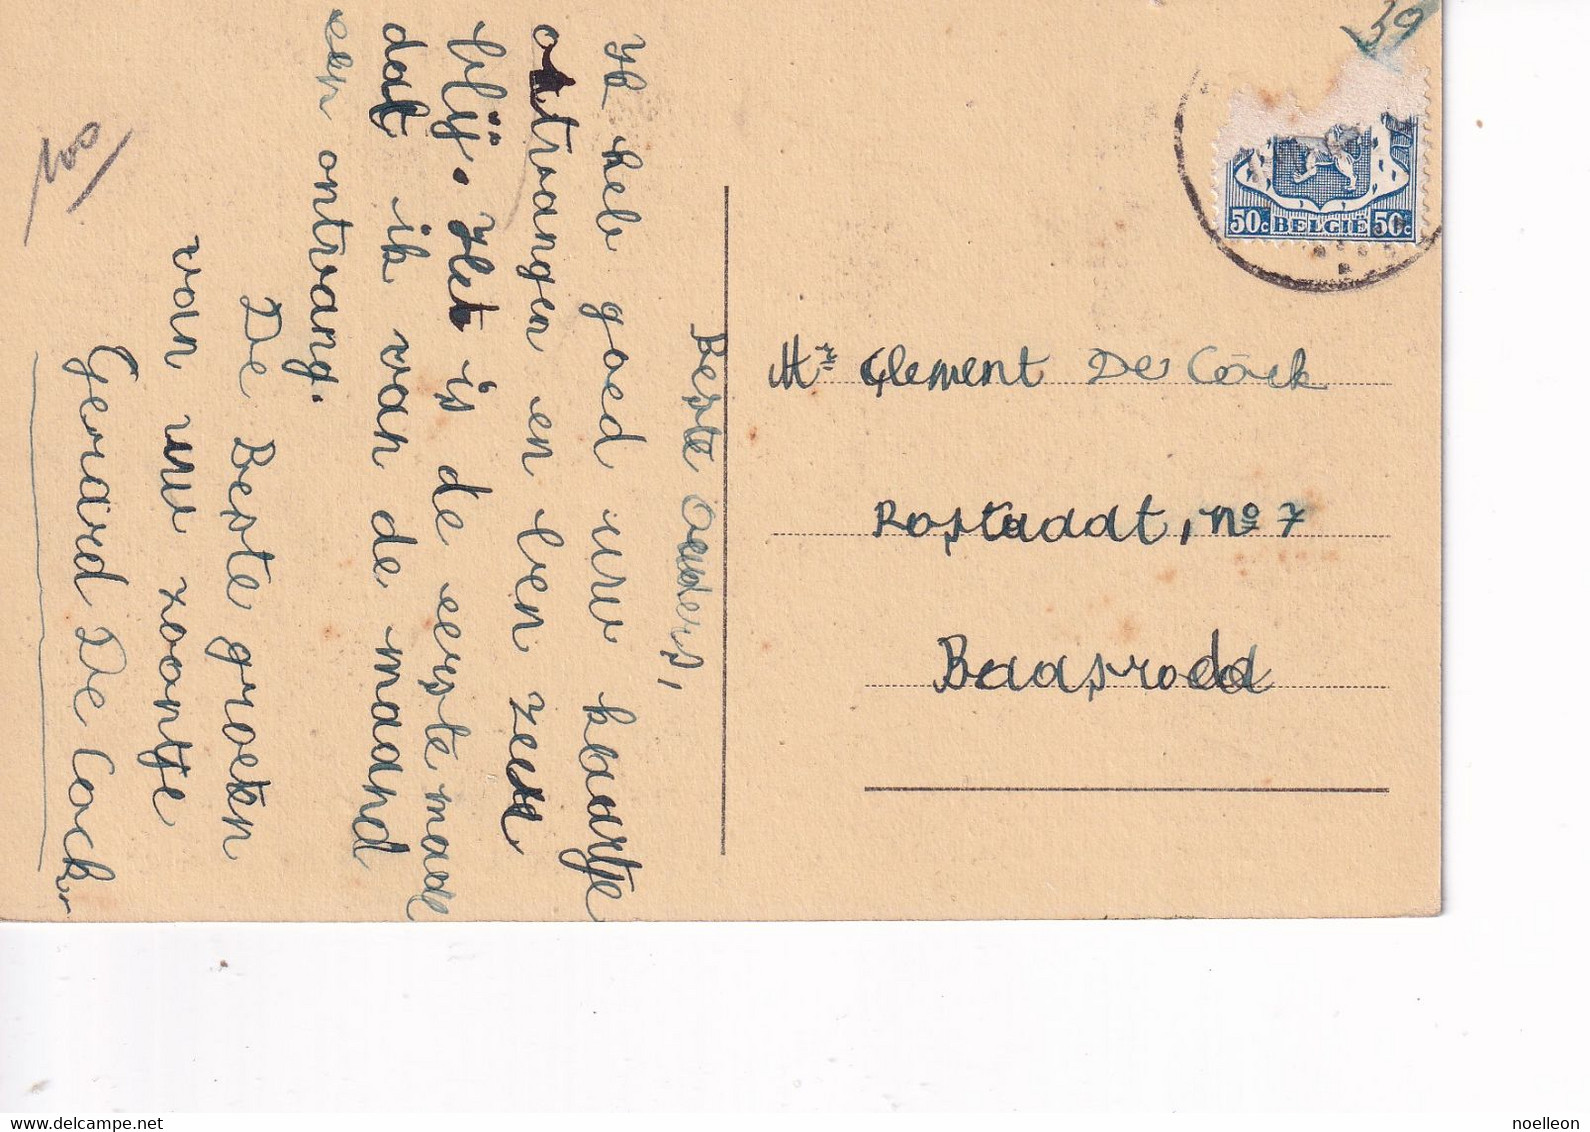 Beste Ouders,
Ik heb goed uw kaartje
ontvangen en ben zeer
blij. Het is de eerste maal
dat ik van de maand
een ontvang.
De Beste groeten
van uw zoontje
Gerard De Cock
100
39
50c BELGIË 50c
Mr Clement De Cock
Rostraat, no 7
Baasrode
www.delcampe.net
noelleon